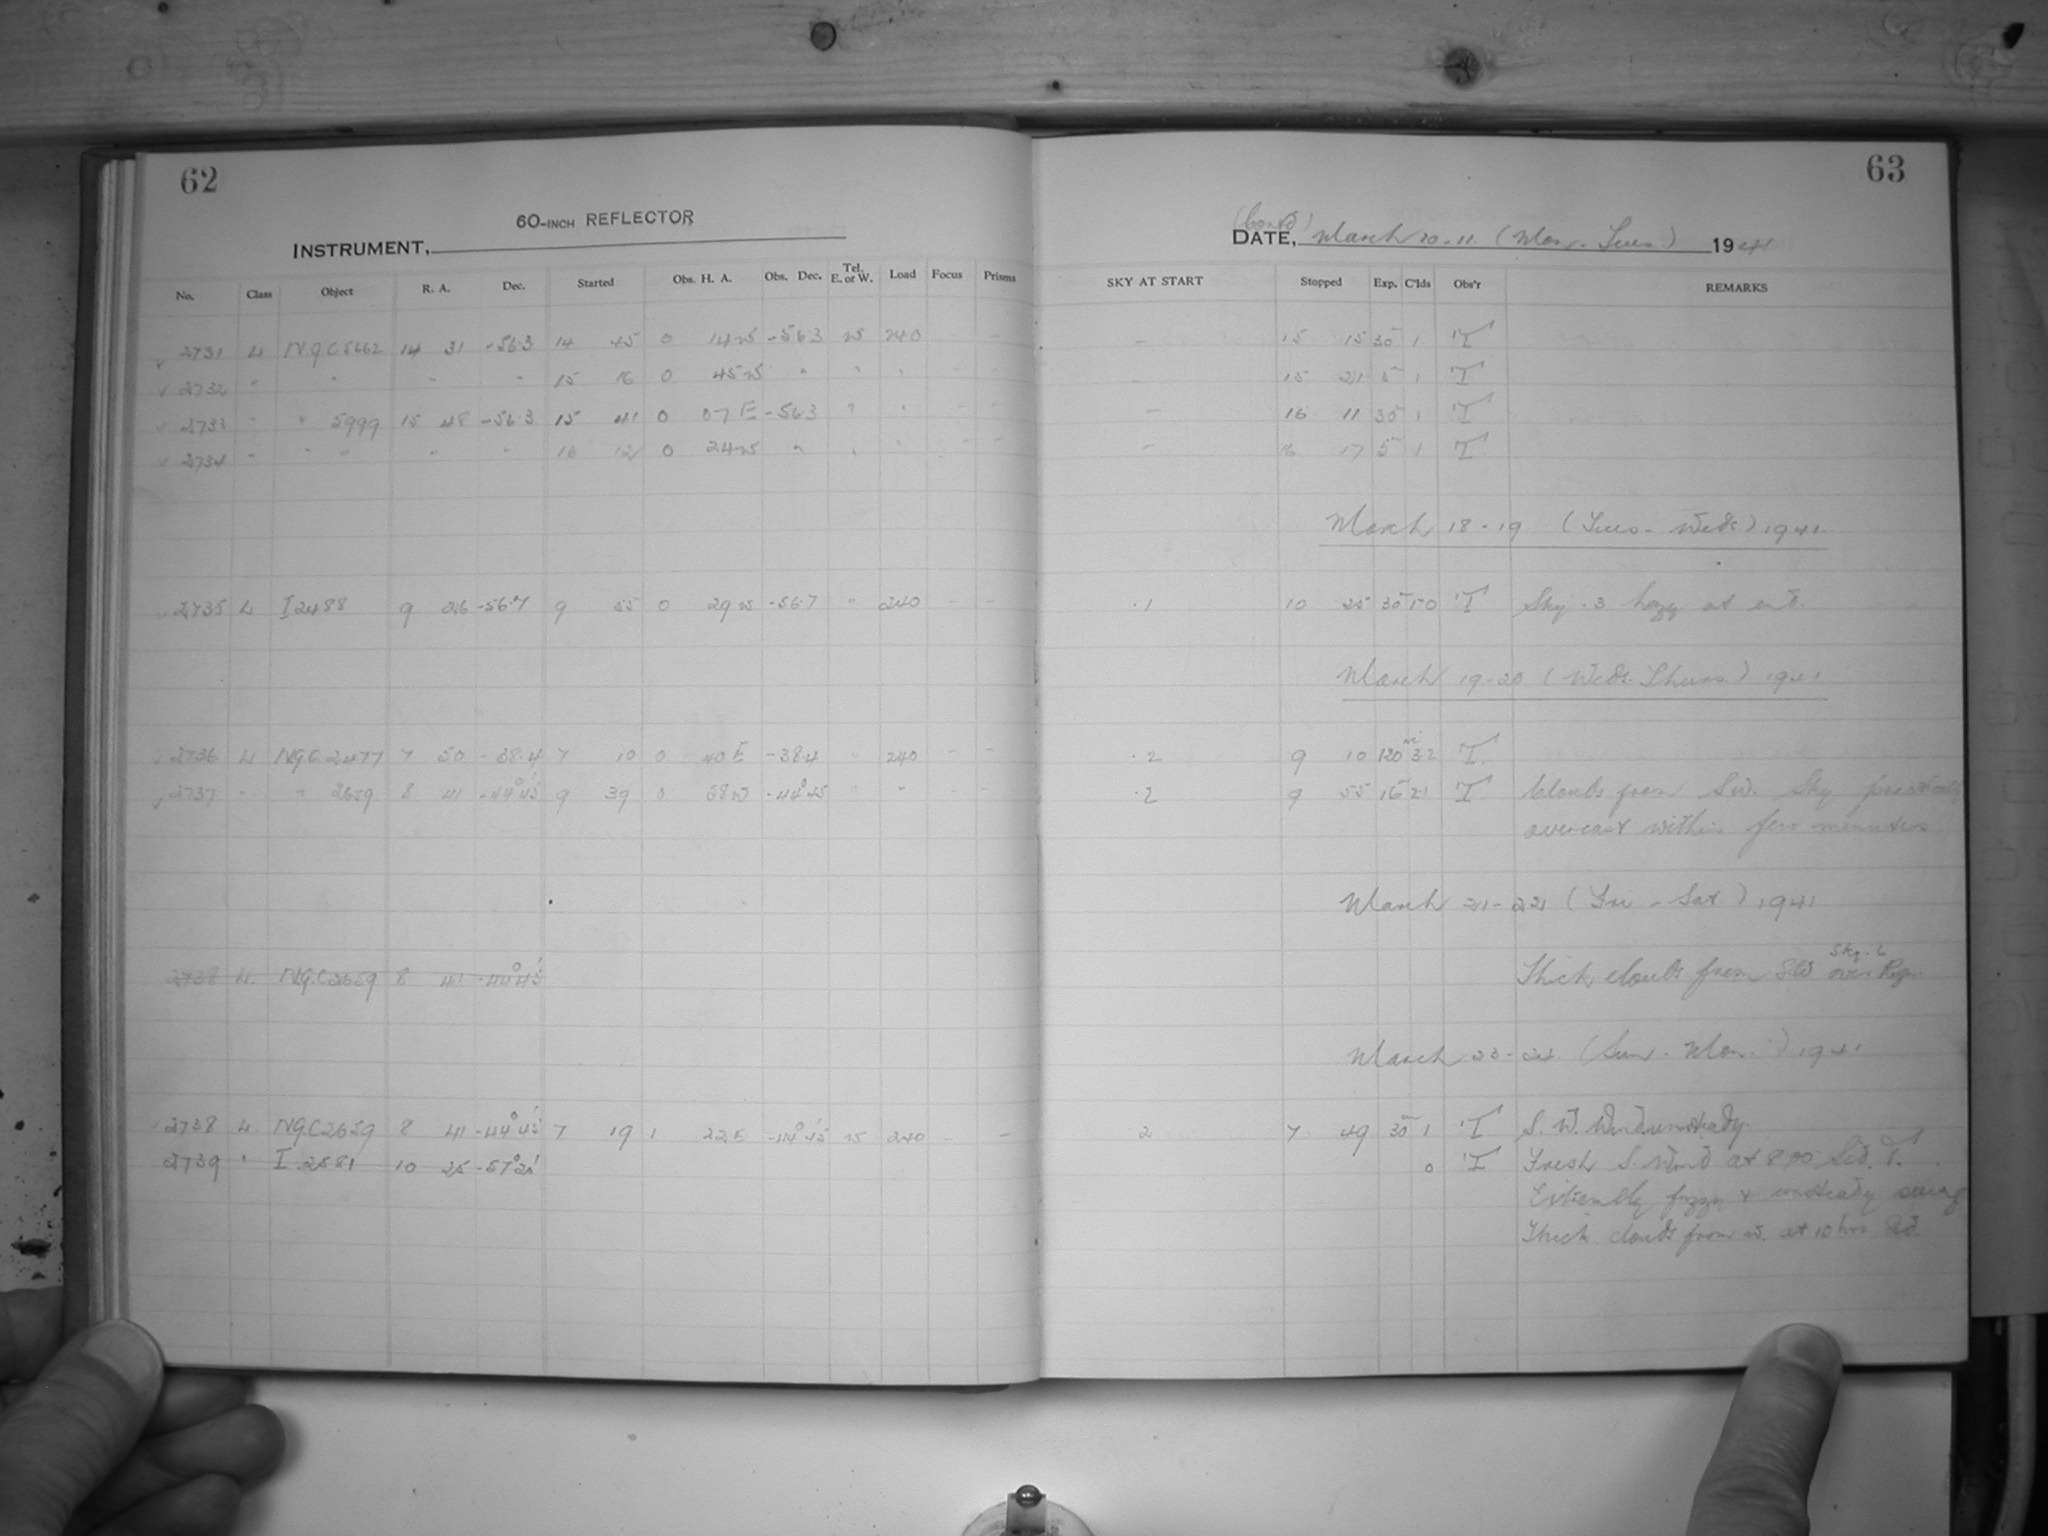 62
60-INCH REFLECTOR
INSTRUMENT,
No. Class Object R. A. Dec. Started Obs. H. A. Obs. Dec. Tel. E. or W. Load Focus Prisms
2731 L NGC 5662 14 31 -56.3 14 45 0 14 W -56.3 W 240 - -
2732 " " " " 15 16 0 45 W " " "
2733 " " 5999 15 48 -56.3 15 41 0 07 E -56.3 " " - -
2734 " " " " " 16 12 0 24 W " " " - -
2735 L I 2488 9 26 -56.7 9 55 0 29 W -56.7 " 240 - -
2736 L NGC 2477 7 50 -38.4 7 10 0 40 E -38.4 " 240 - -
2737 " " 2659 8 41 -44°45' 9 39 0 58 W -44°45 " " - -
2738 L. NGC 2659 8 41 -44°45'
2738 L NGC 2659 8 41 -44°45' 7 19 1 22 E -44°45 W 240 - -
2739 " I. 2581 10 25 -57°
63
(Cont'd)
DATE, March 10-11. (Mon. - Tues.) 1941
SKY AT START Stopped Exp. C'lds Obs'r REMARKS
- 15 15 30 1 T
- 15 21 5 1 T
- 16 11 30 1 T
- 16 17 5 1 T
March 18-19 (Tues - Weds) 1941.
.1 10 25 30 T Sky .3 hazy at end.
March 19-20 (Weds. Thurs.) 1941
.2 9 10 120 T.
.2 9 55 16 T Clouds from SW. Sky practically
overcast within few minutes
March 21-22 (Fri - Sat) 1941
Sky .6
Thick clouds from SW over Regn
March 23-24 (Sun. - Mon.) 1941
.2 7 49 30 1 T S. W. Wind unsteady.
0 T Fresh S. Wind at 8 00 Sid. T.
Extremely fuzzy & unsteady seeing
Thick clouds from W. at 10 hrs Sid.